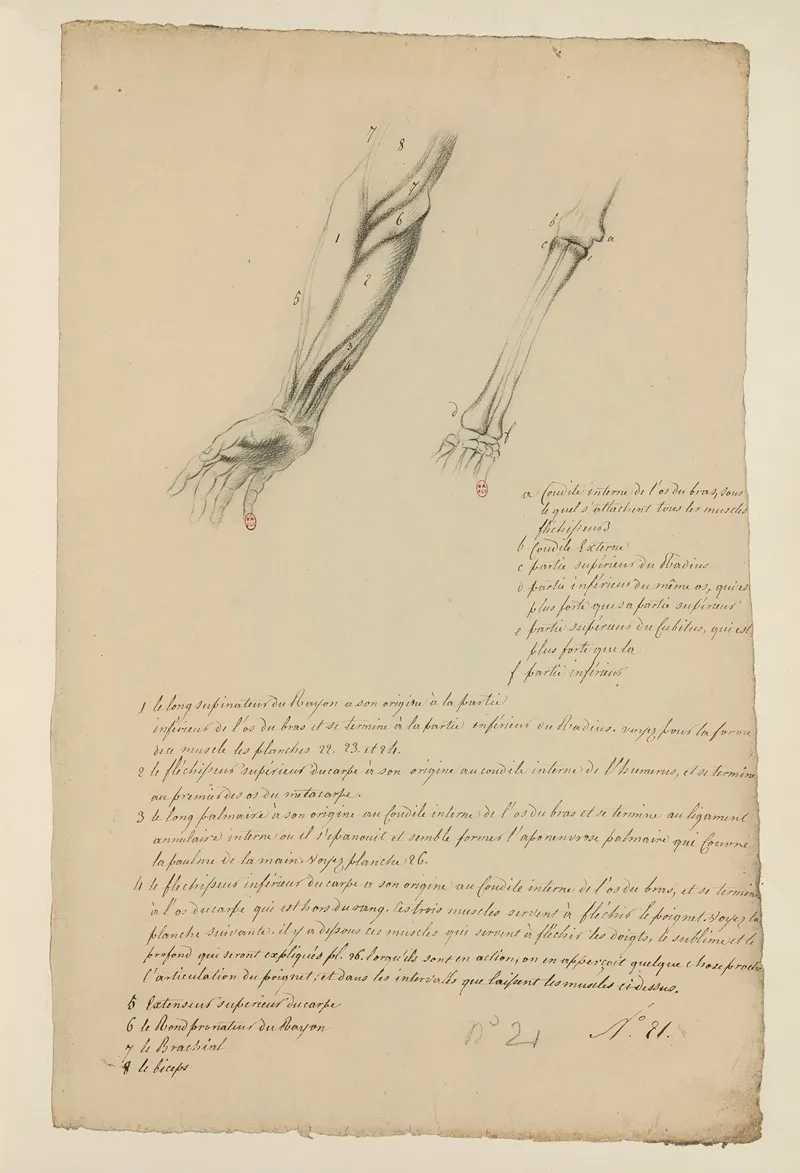 7
8
7
6
1
2
5
3
4
b
c
a
e
d
f
a Condile interne de l'os du bras, sous
le quel s'attachent tous les muscles
fléchisseurs
b Condile Externe
c partie supérieur du Radius
d partie inférieur du même os, qui est
plus forte que sa partie supérieur
e partie supérieur du Cubitus, qui est
plus forte que la
f partie inférieur
1 le long supinateur du Rayon a son origine à la partie
inférieur de l'os du bras et se termine à la partie inférieur du Radius. voyez pour la forme
de ce muscle les planches 22. 23. et 24.
2 le fléchisseur supérieur du carpe à son origine au condile interne de l'humerus, et se termine
au premier des os du metacarpe.
3 le long palmaire à son origine au Condile interne de l'os du bras et se termine au ligament
annulaire interne ou il s'epanouit et semble former l'aponenvrose palmaire qui Couvre
la paulme de la main. Voyez planche 26.
4 le flechisseur inférieur du carpe a son origine au Condile interne de l'os du bras, et se termine
à l'os du carpe qui est hors du rang. Ces trois muscles servent à fléchir le poignet. Voyez la
planche suivante. il y a dessous ces muscles qui servent à fléchir les doigts, le sublime et le
profond qui seront expliqués pl. 26. lorsqu'ils sont en action, on en apperçoit quelque chose proche
l'articulation du poignet; et dans les intervalles que laissent les muscles ci dessus.
5 Extenseur superieur du carpe
6 le Rond pronateur du Rayon
7 le Brachial
8 le biceps
n° 21
N.° 21.